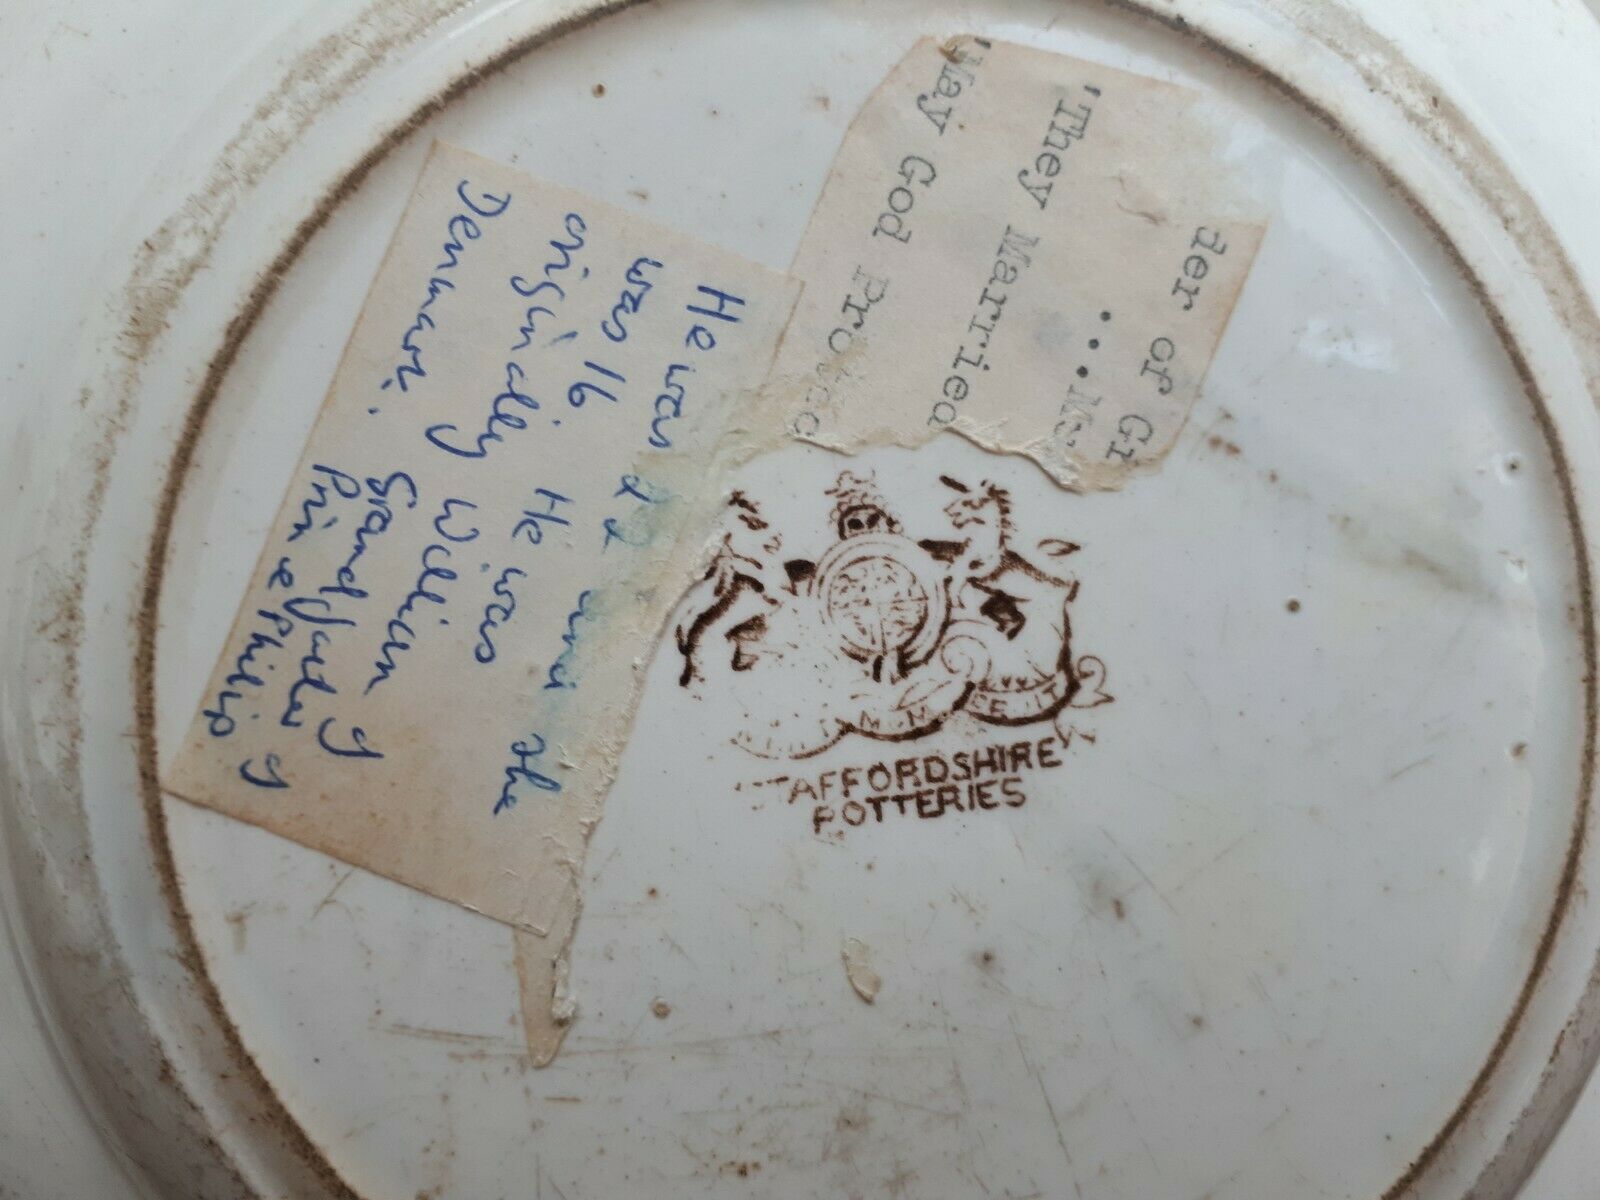 der of Gr
...M
"They Married
"May God Protec
He was 22 and she
was 16. He was
originally William of
Denmark. grandfather of
Prince Philip
STAFFORDSHIRE
POTTERIES